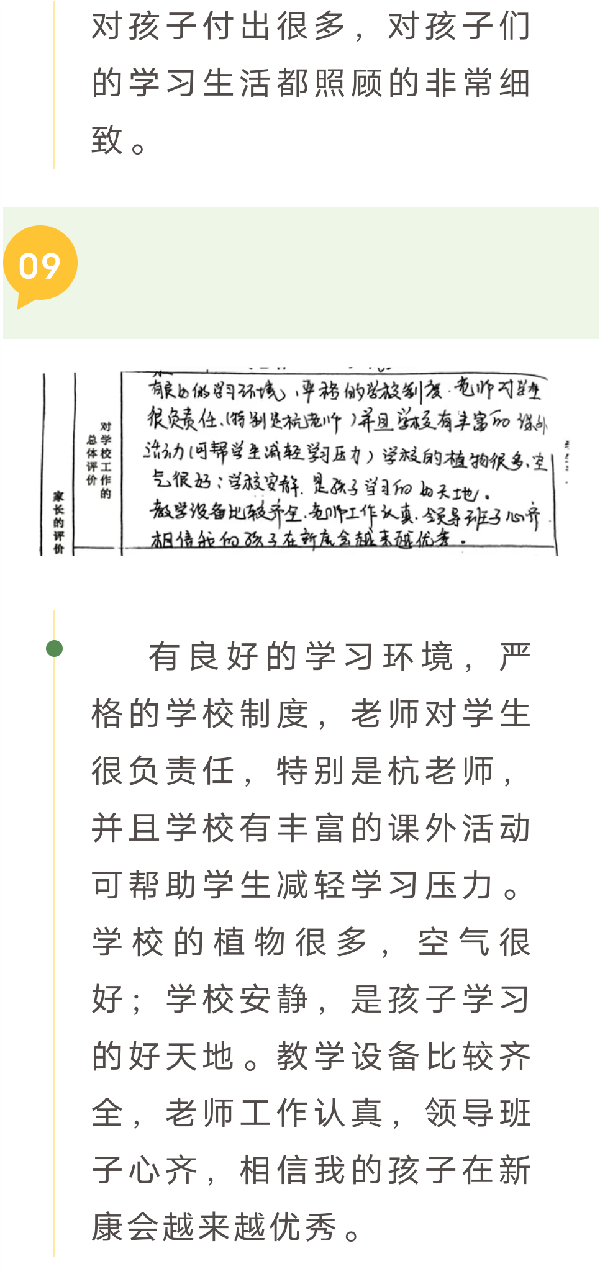 对孩子付出很多，对孩子们
的学习生活都照顾的非常细
致。
09
家长的评价
对学校工作的
总体评价
有良好的学习环境，严格的学校制度．老师对学生
很负责任．(特别是杭老师）并且学校有丰富的课外
活动力(可帮学生减轻学习压力）学校的植物很多，空
气很好；学校安静．是孩子学习的好天地．
教学设备比较齐全．老师工作认真．领导班子心齐．
相信我的孩子在新康会越来越优秀．
有良好的学习环境，严
格的学校制度，老师对学生
很负责任，特别是杭老师，
并且学校有丰富的课外活动
可帮助学生减轻学习压力。
学校的植物很多，空气很
好；学校安静，是孩子学习
的好天地。教学设备比较齐
全，老师工作认真，领导班
子心齐，相信我的孩子在新
康会越来越优秀。